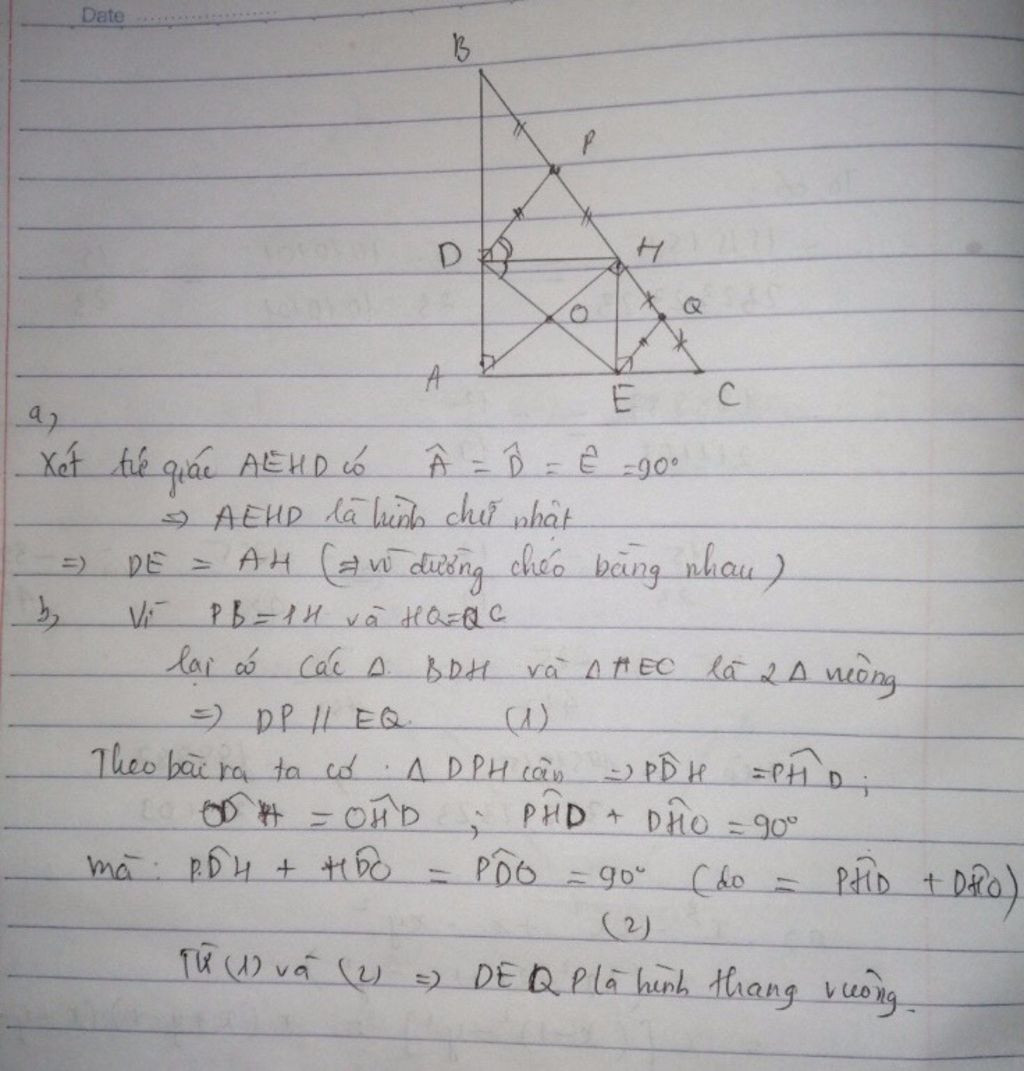 Date
B
P
D
H
O
Q
A
E
C
a,
Xét tứ giác AEHD có Â = D̂ = Ê = 90°
=> AEHD là hình chữ nhật
=> DE = AH (=> vì đường chéo bằng nhau)
b, Vì PB = PH và HQ = QC
lại có các Δ BDH và Δ HEC là 2 Δ vuông
=> DP // EQ (1)
Theo bài ra ta có . Δ DPH cân => PD̂H = PĤD ;
OD̂H = OĤD ; PĤD + DĤO = 90°
mà : PD̂H + HD̂O = PD̂O = 90° (do = PĤD + DĤO)
(2)
Từ (1) và (2) => DEQP là hình thang vuông.